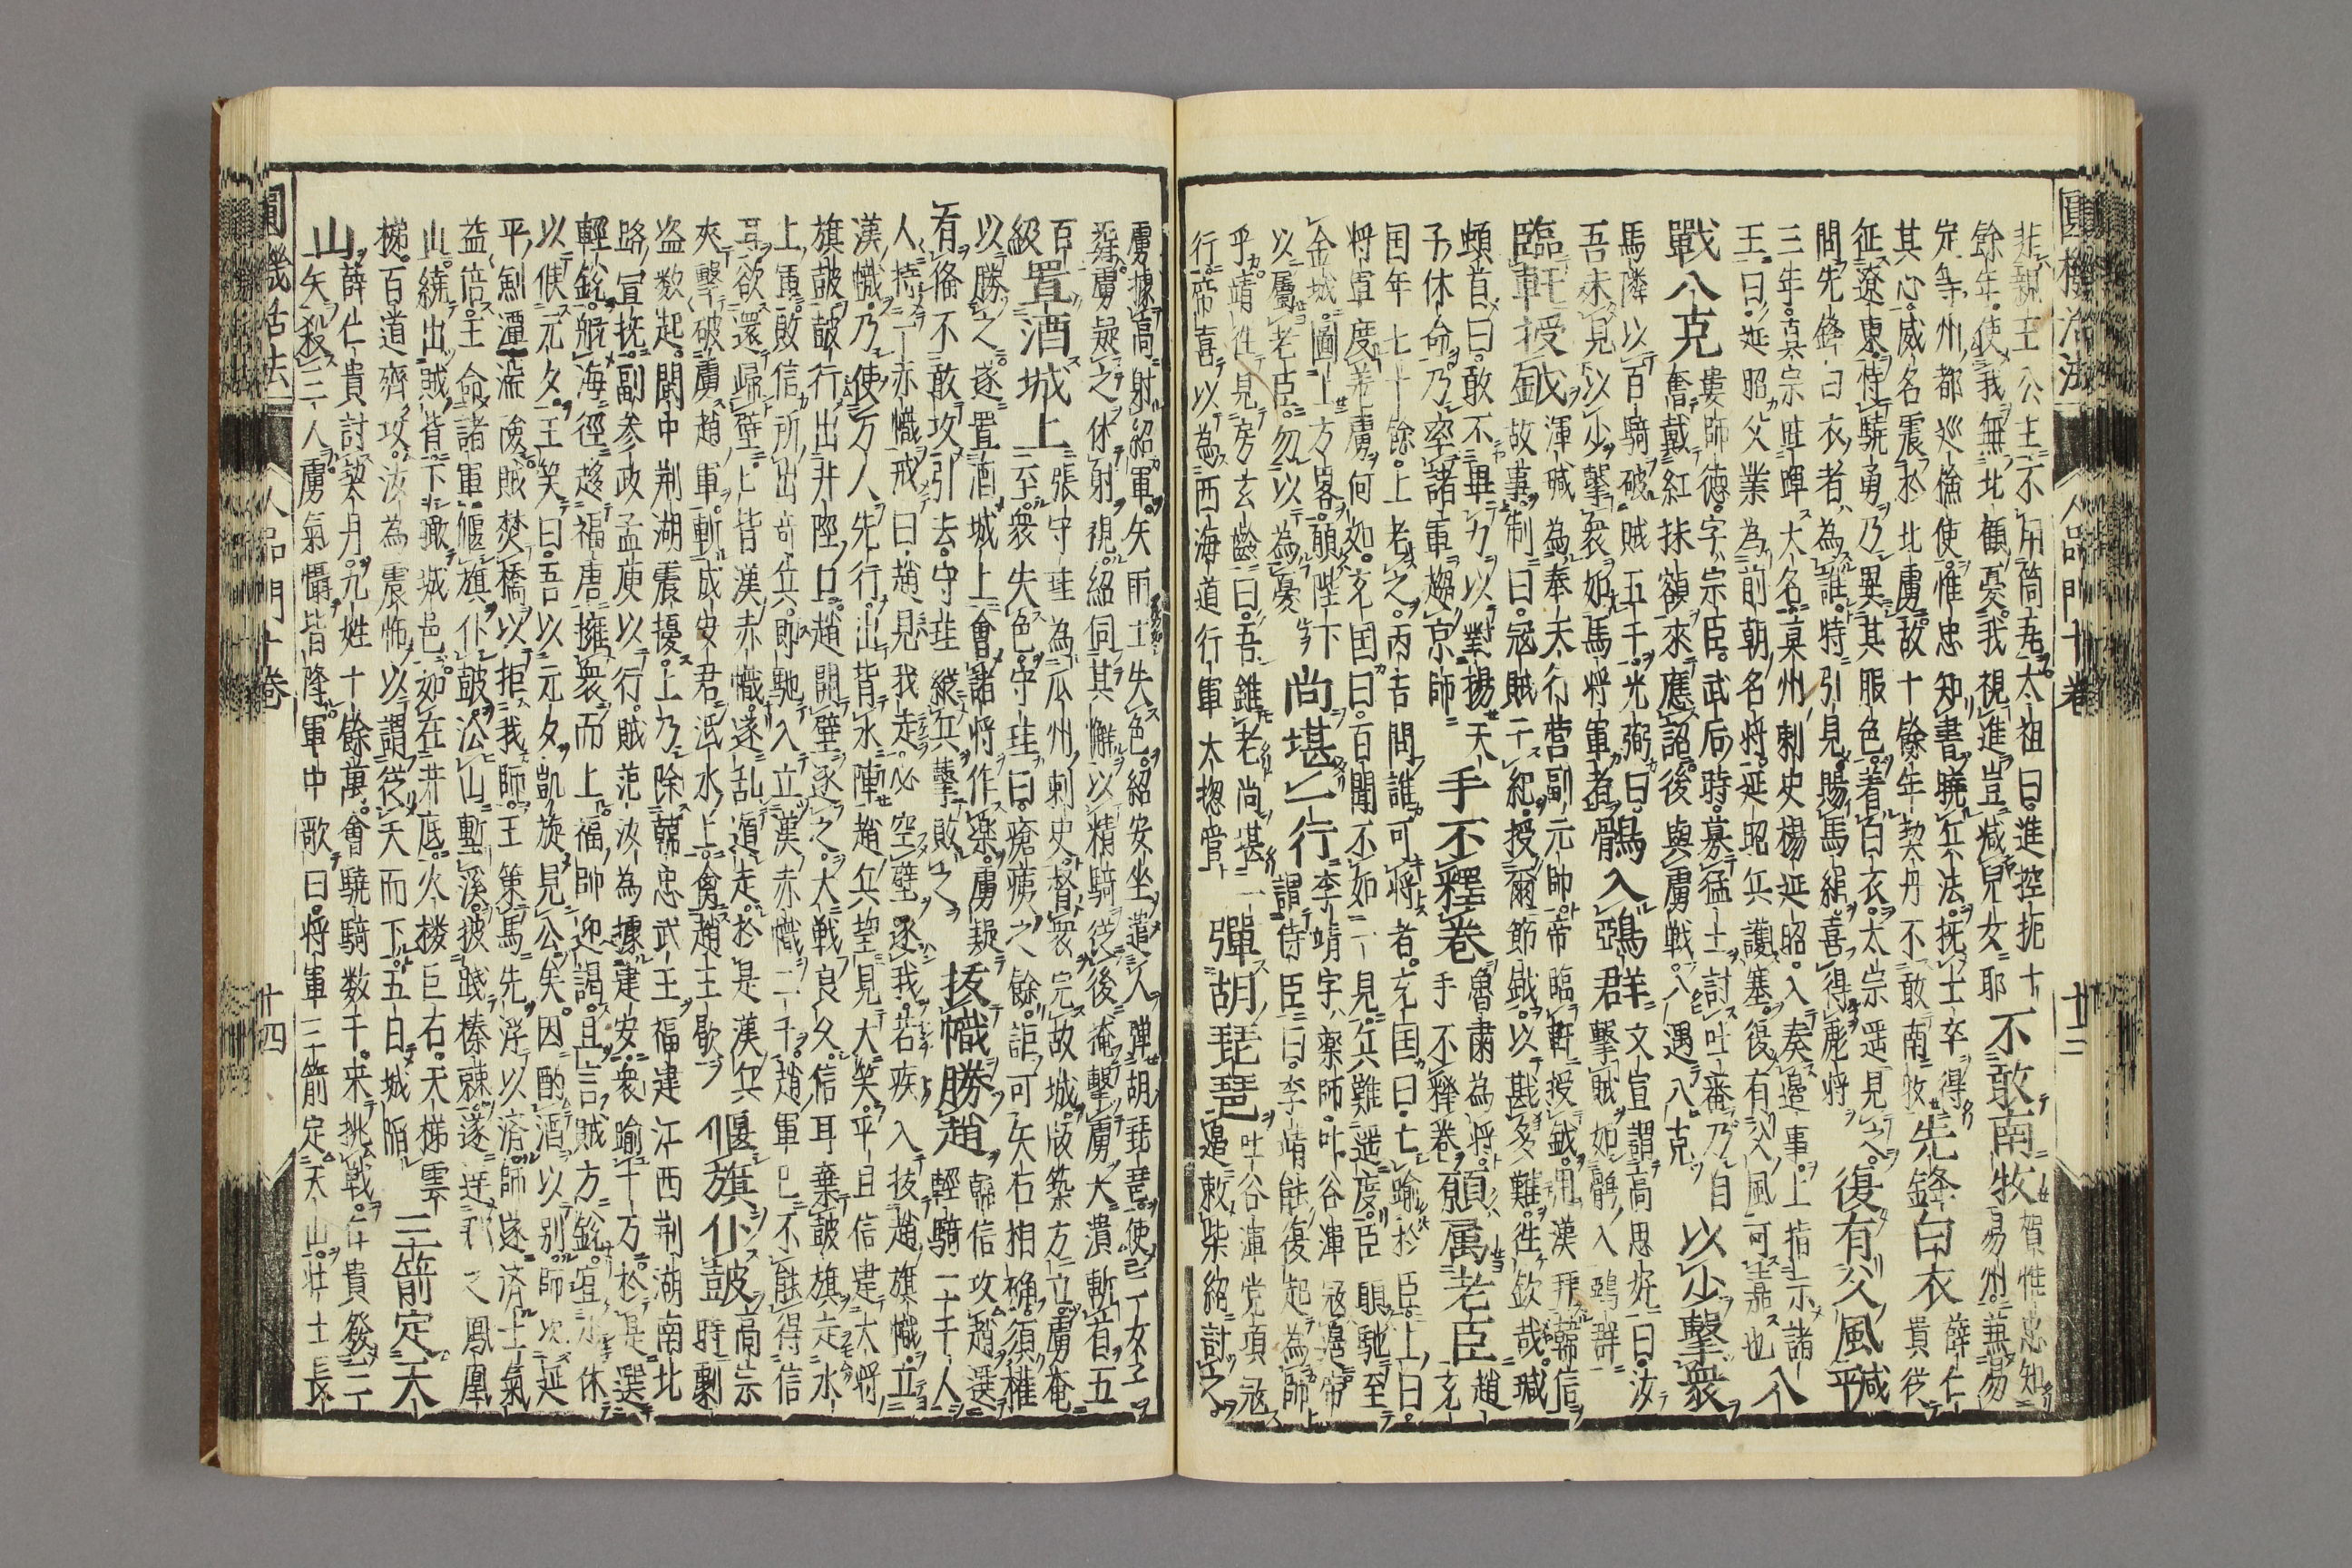 圓機活法
人品門十巻
廿三
非親王公主不用筒瓦太祖曰進控扼十
餘年使我無北顧憂我視進豈減兒女耶
不敢南牧
賀惟忠知
易州兼易
定等州都巡檢使惟忠知書曉兵法抚士卒得
其心威名震於北虜故十餘年契丹不敢南牧
先鋒白衣
薛仁
貴從
征遼東恃驍勇乃異其服色着白衣太宗遥見
問先鋒白衣者為誰特引見賜馬絹喜得彪将
復有父風
咸
平
三年真宗駐蹕大名莫州刺史楊延昭入奏邉事上指示諸
王曰延昭父業為前朝名将延昭兵護塞復有父風可嘉也
八
戰八克
婁師徳字宗臣武后時募猛士討吐蕃乃自
奮戴紅抹額來應詔後與虜戦八遇八克
以少擊衆
馬隣以百騎破賊五千光弼曰
吾未見以少擊衆如馬将軍者
鶻入鴉群
文宣謂高思好曰汝
擊賊如鶻入鴉群
臨軒授鉞
渾瑊為奉天行营副元帥帝臨軒授鉞用漢拜韓信
故事制曰冦賊干紀授爾節鉞以戡多難徃欽哉瑊
頓首曰敢不畢力以對揚天
子休命乃率諸軍趨京師
手不釋卷
魯肅為将
手不釋卷
願属老臣
趙
充
国年七十餘上老之丙吉問誰可将者充国曰亡踰於臣上曰
将軍度羌虜何如充国曰百聞不如一見兵難遥度臣願馳至
金城圖上方畧願陛下
以屬老臣勿以為憂
尚堪一行
李靖字藥師吐谷渾冦邉帝
謂侍臣曰李靖能復起為帥
乎靖徃見房玄齡曰吾雖老尚堪一
行帝喜以為西海道行軍大揔管
彈胡琵琶
吐谷渾党項冦
邉敕柴紹討之
虜據高射紹軍矢雨士失色紹安坐遣人弾胡琵琶使二女子
舞虜疑之休射視紹伺其懈以精騎從後掩擊虜大潰斬首五
百
級
置酒城上
張守珪為瓜州刺史督衆完故城版築方立虜奄
至衆失色守珪曰瘡痍之餘詎可矢石相确須權
以勝之遂置酒城上會諸将作樂虜疑
有俻不敢攻引去守珪縱兵擊敗之
抜幟勝趙
韓信攻趙選
輕騎二千人
人持一赤幟戒曰趙見我走必空壁逐我若疾入抜趙旗幟立
漢幟乃使万人先行出背水陣趙兵望見大笑平旦信建大将
旗鼓鼓行出井陘口趙開壁逐之大戦良久信耳棄鼓旗走水
上軍敗信所出奇兵即馳入立漢赤幟二千趙軍已不能得信
耳欲還歸壁上皆漢赤幟遂乱遁走於是漢兵
夾擊破虜趙軍斬成安君泜水上禽趙王歇
偃旗仆鼓
高宗
時劇
盗数起閩中荆湖震擾上乃除韓忠武王福建江西荆湖南北
路宣抚副参政孟庾以行賊范汝為據建安衆踰十万於是選
輕銳航海徑趍福唐擁衆而上福帥迎謁且言賊方銳宜少休
以候元夕王笑曰吾以元夕凱旋見公矣因酌酒以别師次延
平劍潭湍險賊焚橋以拒我師王策馬先浮以済師遂済士氣
益倍王命諸軍偃旗仆鼓㳂山塹溪披踐榛棘遂之鳳凰
山繞出賊背下瞰城邑如在井底火楼巨石天梯雲
梯百道齊攻汝為震怖以謂從天而下五日城陥
三箭定天
山
薛仁貴討契丹九姓十餘萬會驍騎数千来挑戦仁貴發三
矢殺三人虜氣懾皆降軍中歌曰将軍三箭定天山壮士長
圓機活法
人品門十巻
廿四